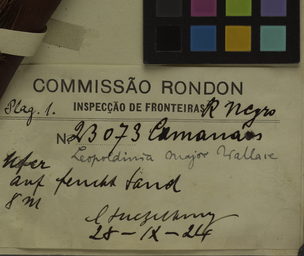 COMMISSÃO RONDON
Plag. 1. INSPECÇÃO DE FRONTEIRAS R Negro
Nº 23073 Camanaos
Leopoldinia major Wallace
Ufer
auf feucht Sand
8 m
28-IX-24